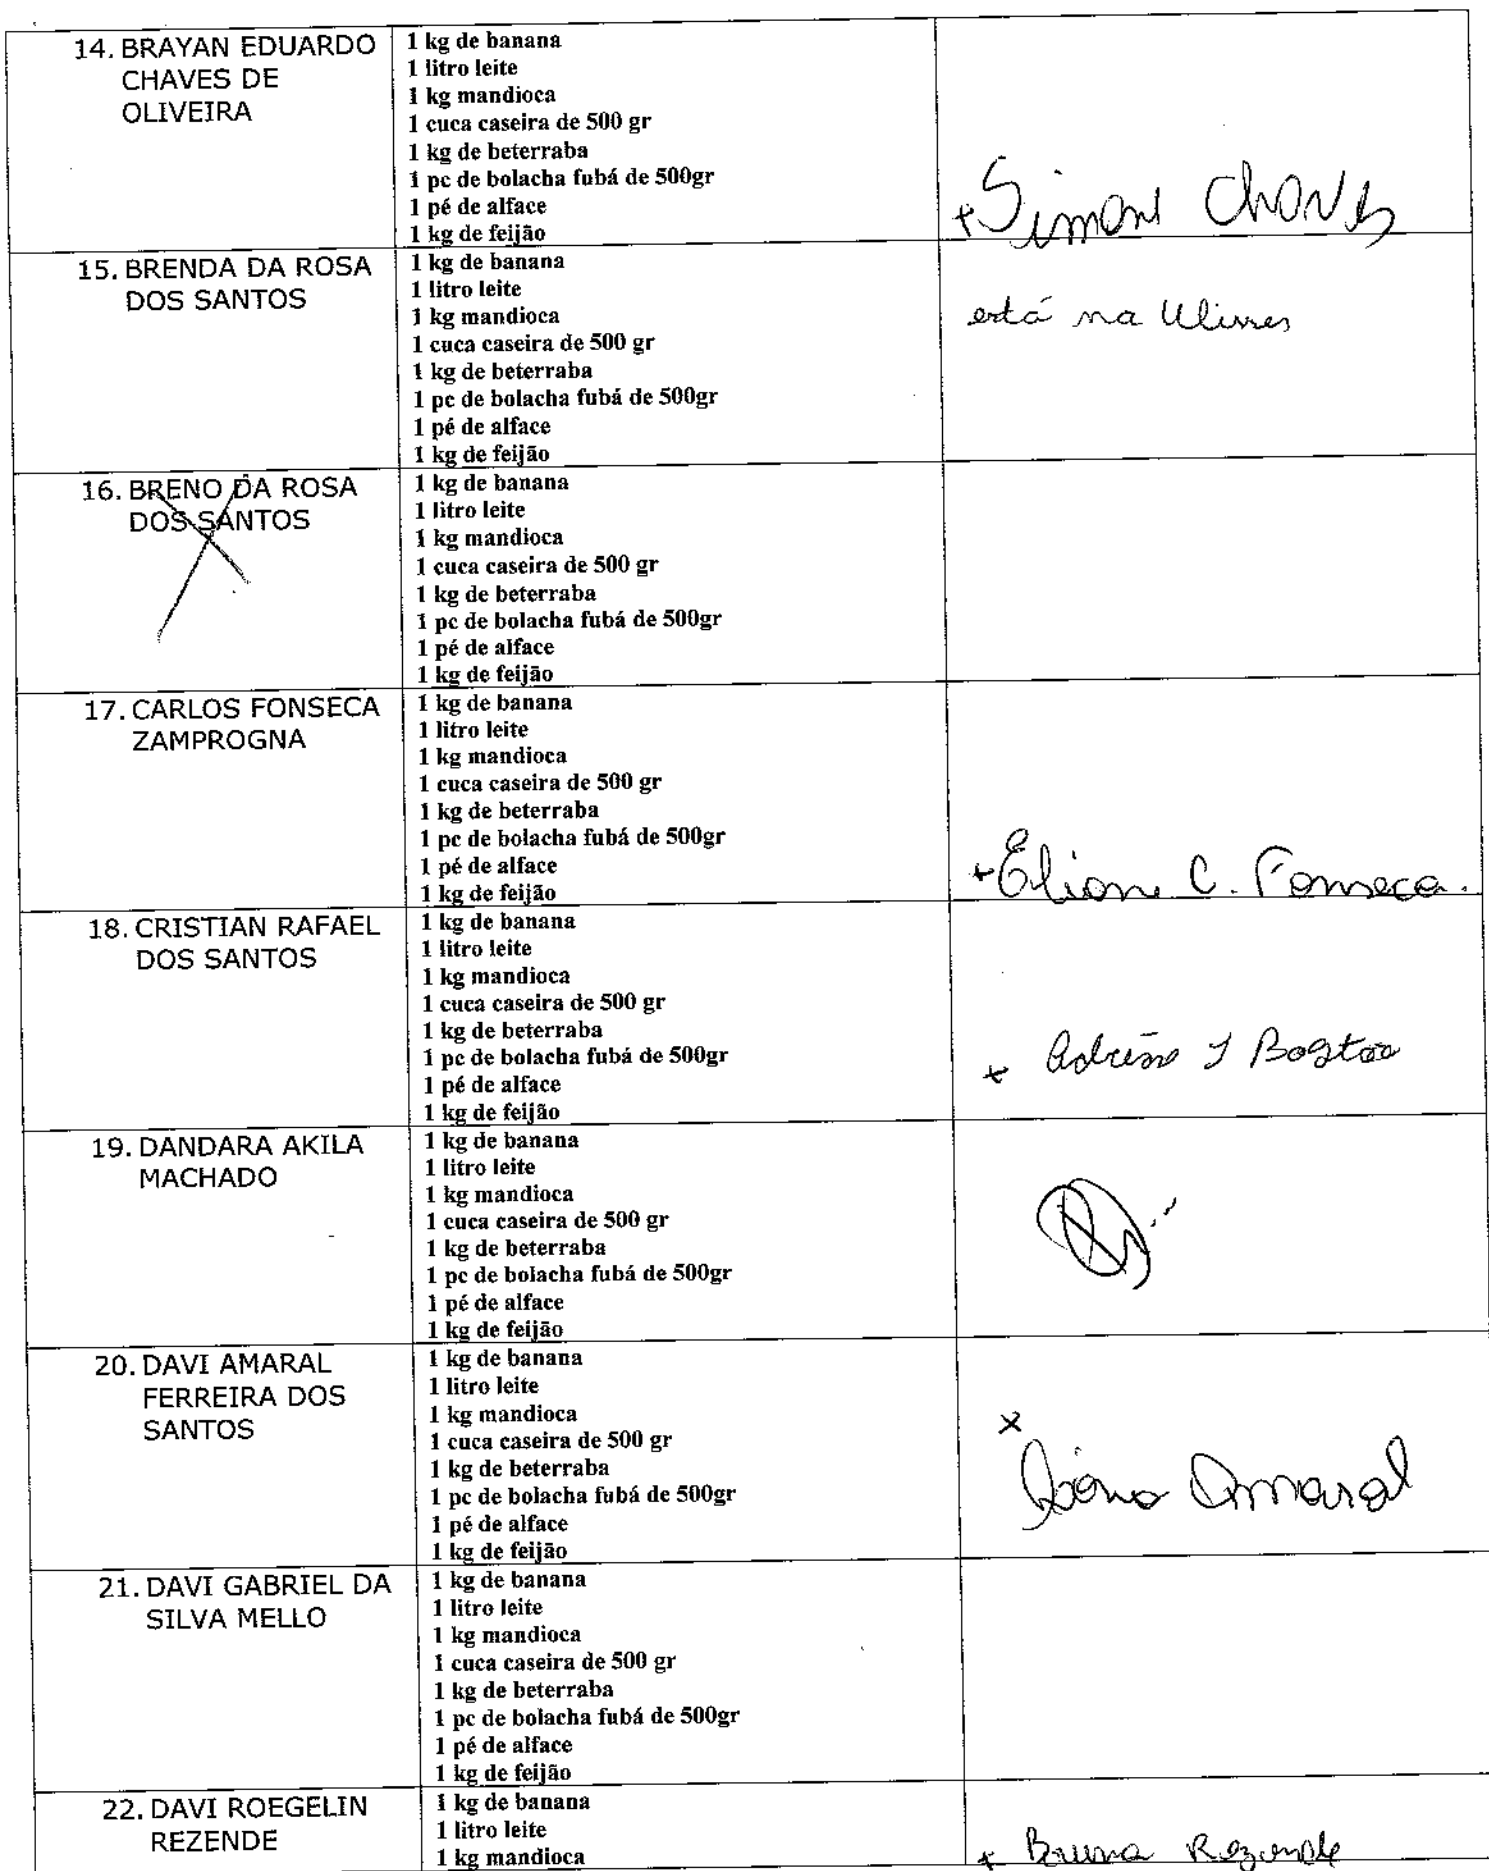 14. BRAYAN EDUARDO
CHAVES DE
OLIVEIRA
1 kg de banana
1 litro leite
1 kg mandioca
1 cuca caseira de 500 gr
1 kg de beterraba
1 pc de bolacha fubá de 500gr
1 pé de alface
1 kg de feijão
+ Simone Chaves
15. BRENDA DA ROSA
DOS SANTOS
1 kg de banana
1 litro leite
1 kg mandioca
1 cuca caseira de 500 gr
1 kg de beterraba
1 pc de bolacha fubá de 500gr
1 pé de alface
1 kg de feijão
está na Ulisses
16. BRENO DA ROSA
DOS SANTOS
1 kg de banana
1 litro leite
1 kg mandioca
1 cuca caseira de 500 gr
1 kg de beterraba
1 pc de bolacha fubá de 500gr
1 pé de alface
1 kg de feijão
17. CARLOS FONSECA
ZAMPROGNA
1 kg de banana
1 litro leite
1 kg mandioca
1 cuca caseira de 500 gr
1 kg de beterraba
1 pc de bolacha fubá de 500gr
1 pé de alface
1 kg de feijão
+ Eliane C. Fonseca.
18. CRISTIAN RAFAEL
DOS SANTOS
1 kg de banana
1 litro leite
1 kg mandioca
1 cuca caseira de 500 gr
1 kg de beterraba
1 pc de bolacha fubá de 500gr
1 pé de alface
1 kg de feijão
x
19. DANDARA AKILA
MACHADO
1 kg de banana
1 litro leite
1 kg mandioca
1 cuca caseira de 500 gr
1 kg de beterraba
1 pc de bolacha fubá de 500gr
1 pé de alface
1 kg de feijão
20. DAVI AMARAL
FERREIRA DOS
SANTOS
1 kg de banana
1 litro leite
1 kg mandioca
1 cuca caseira de 500 gr
1 kg de beterraba
1 pc de bolacha fubá de 500gr
1 pé de alface
1 kg de feijão
x
Amaral
21. DAVI GABRIEL DA
SILVA MELLO
1 kg de banana
1 litro leite
1 kg mandioca
1 cuca caseira de 500 gr
1 kg de beterraba
1 pc de bolacha fubá de 500gr
1 pé de alface
1 kg de feijão
22. DAVI ROEGELIN
REZENDE
1 kg de banana
1 litro leite
1 kg mandioca
x Bruna Rezende